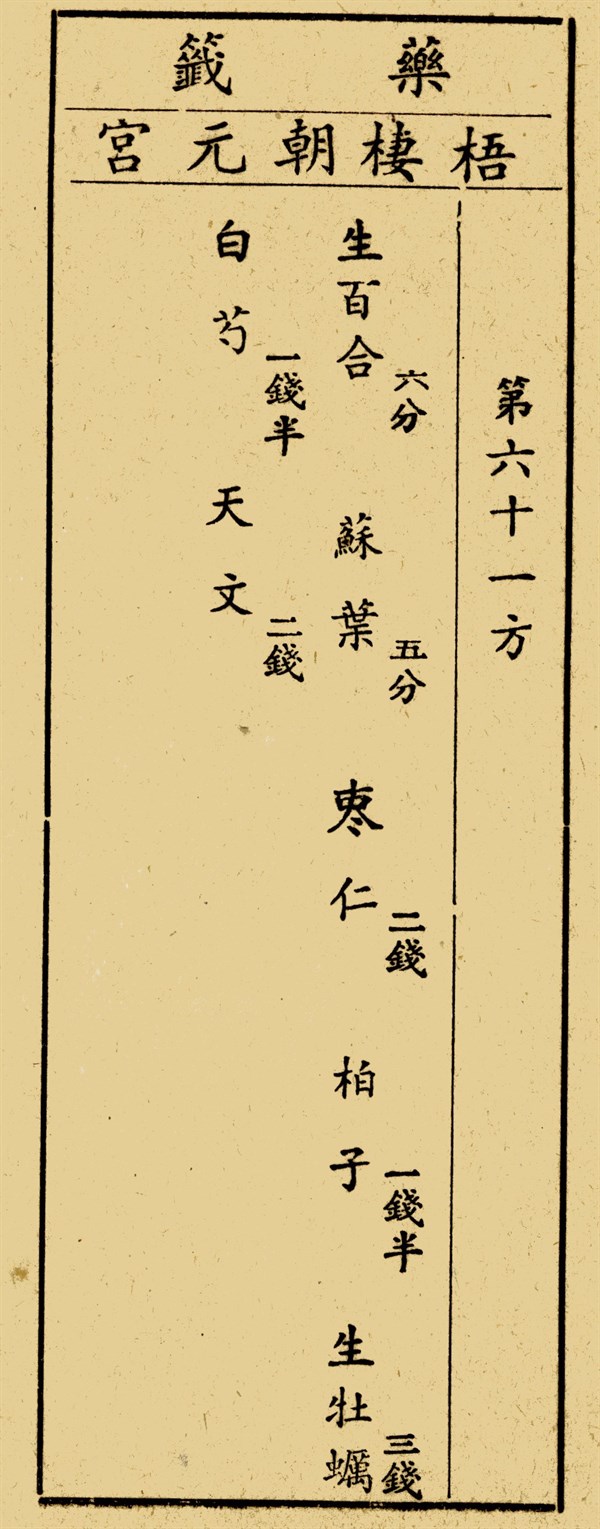 藥籤
梧棲朝元宮
第六十一方
生百合 六分 蘇葉 五分 枣仁 二錢 柏子 一錢半 生牡蠣 三錢
白芍 一錢半 天文 二錢